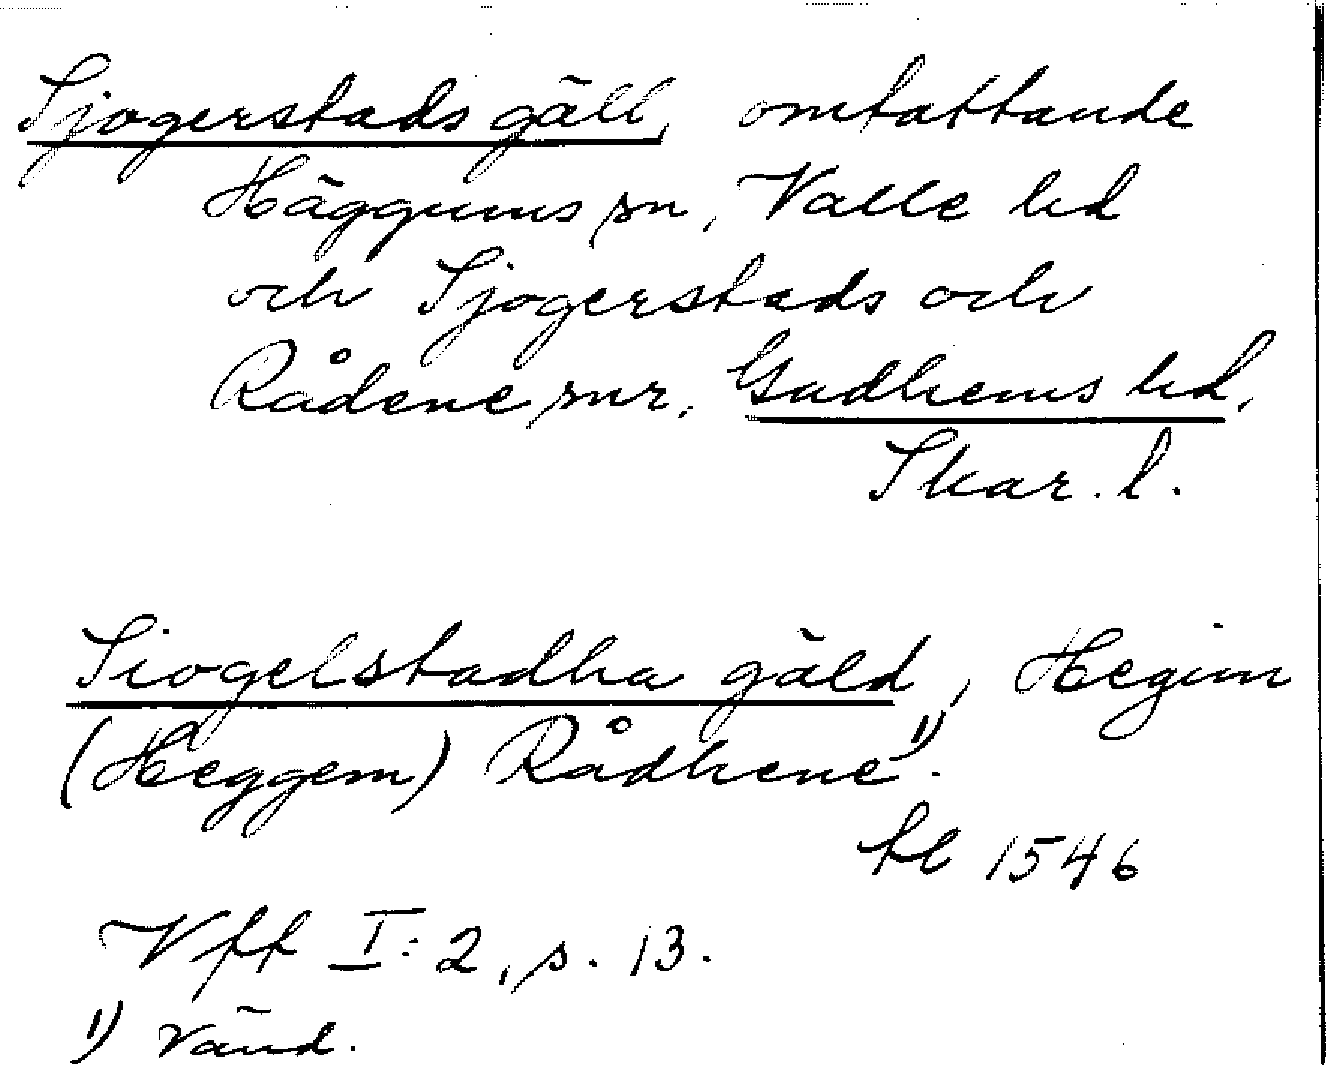 Sjogerstads gäll, omfattande
Häggums sn, Valle hd
och Sjogerstads och
Rådene snr, Gudhems hd,
Skar. l.
Siogelstadha gäld, Hegim
(Heggem) Rådhene¹⁾.
fl 1546
Vff I:2, s. 13.
1) Vänd.